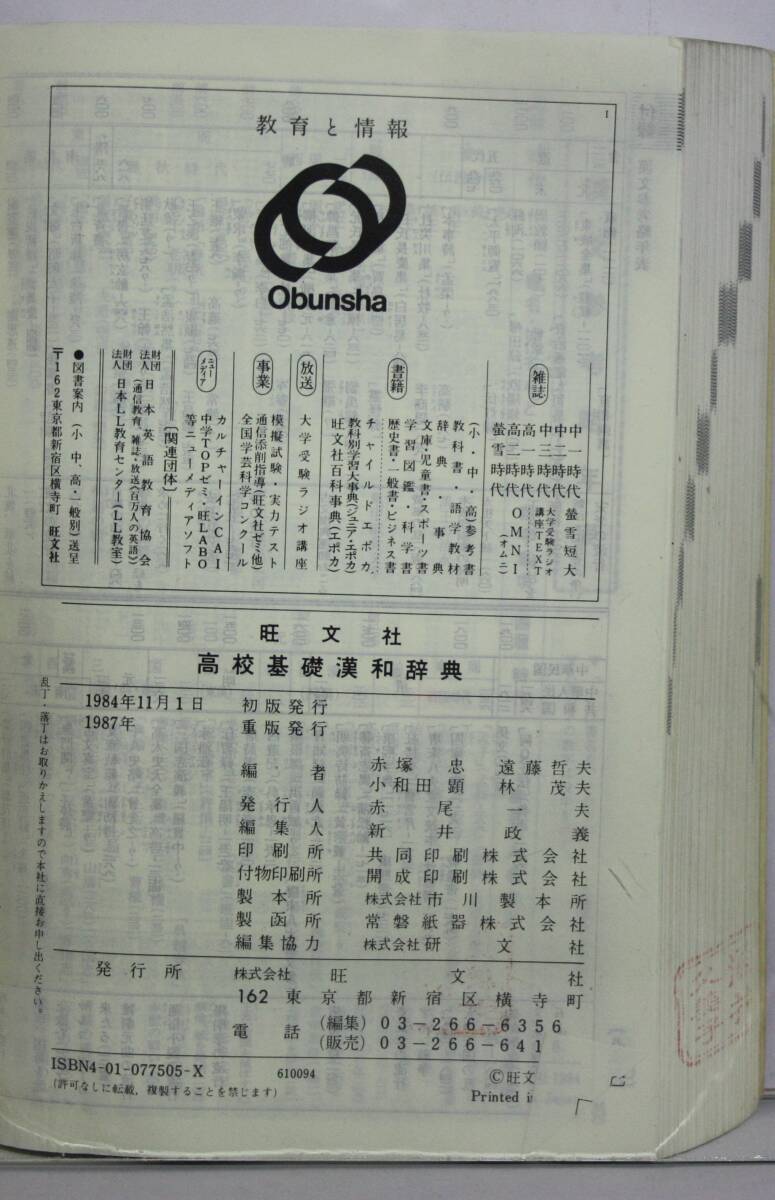 教育と情報
Obunsha
雑誌
中一時代
中二時代
中三時代
高一時代
高二時代
螢雪時代
螢雪短大
大学受験ラジオ講座TEXT
OMNI
(オムニ)
書籍
(小・中・高)参考書
教科書・語学教材
辞典・事典
文庫・児童書・スポーツ書
学習図鑑・科学書
歴史書・一般書・ビジネス書
チャイルドエポカ
教科別学習大事典(ジュニア・エポカ)
旺文社百科事典(エポカ)
放送
大学受験ラジオ講座
事業
模擬試験・実力テスト
通信添削指導(旺文社ゼミ他)
全国学芸科学コンクール
ニューメディア
カルチャーインCAI
中学TOPゼミ・旺LABO
等ニューメディアソフト
〔関連団体〕
財団法人 日本英語教育協会
(通信教育、雑誌・放送(百万人の英語))
財団法人 日本LL教育センター(LL教室)
●図書案内(小、中、高・一般別)送呈
〒162東京都新宿区横寺町 旺文社
旺文社
高校基礎漢和辞典
1984年11月1日 初版発行
1987年 重版発行
編者 赤塚忠 遠藤哲夫
小和田顕 林茂夫
発行人 赤尾一夫
編集人 新井政義
印刷所 共同印刷株式会社
付物印刷所 開成印刷株式会社
製本所 株式会社市川製本所
製函所 常磐紙器株式会社
編集協力 株式会社研文社
発行所 株式会社旺文社
162 東京都新宿区横寺町
電話 (編集) 03-266-6356
(販売) 03-266-641
ISBN4-01-077505-X 610094 ©旺文
(許可なしに転載, 複製することを禁じます) Printed i
乱丁・落丁はお取りかえしますので本社に直接お申し出ください。